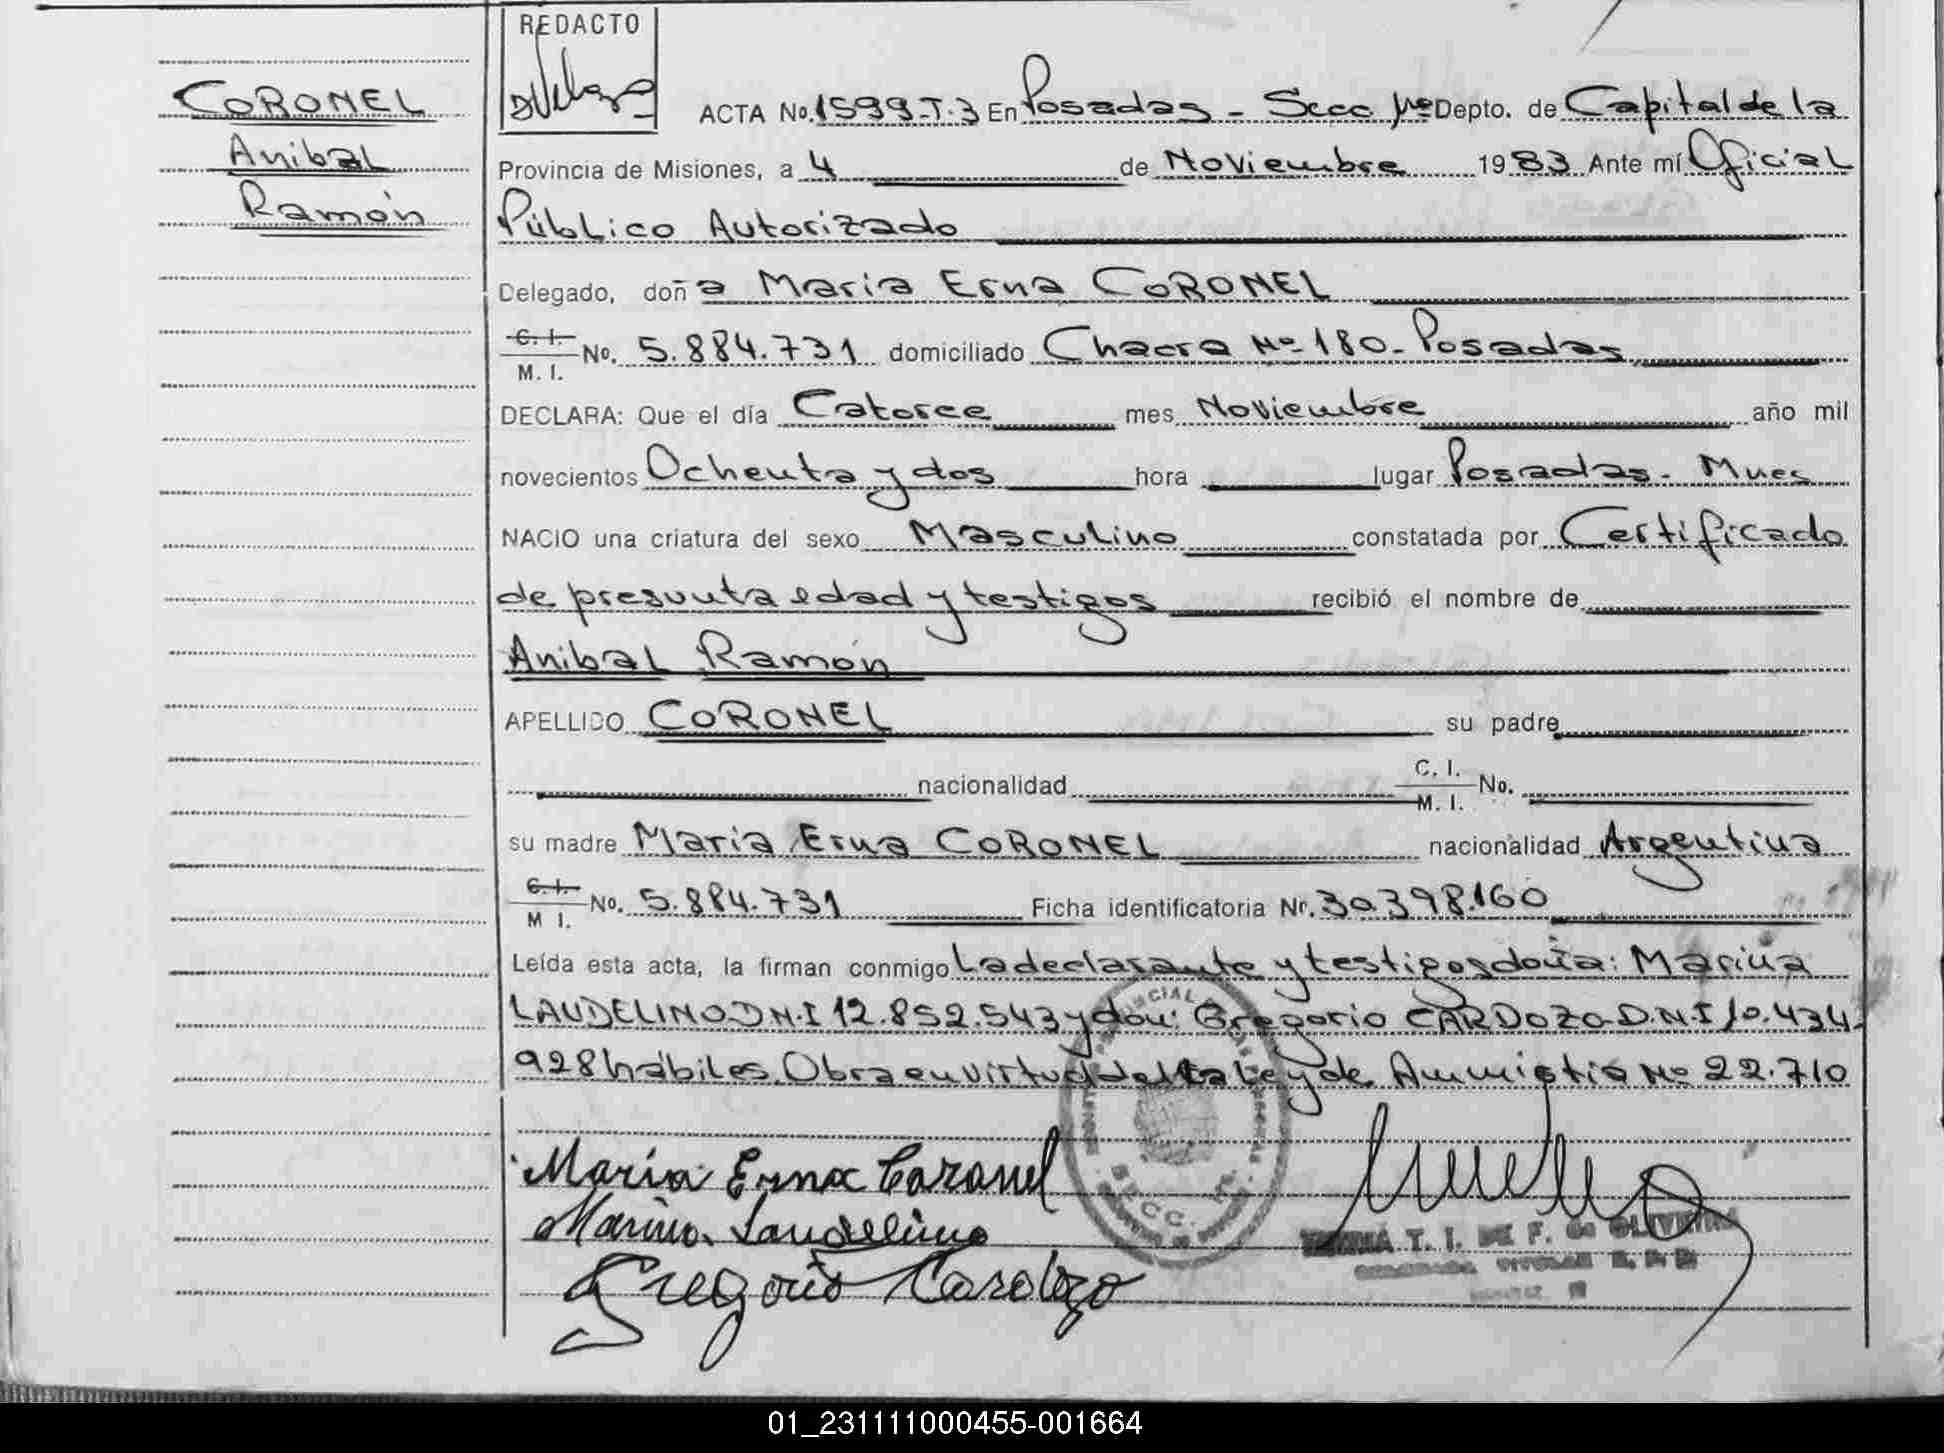 REDACTO
CORONEL
Anibal
Ramón
ACTA No. 1599-T.3 En Posadas - Secc 1ra Depto. de Capital de la
Provincia de Misiones, a 4 de Noviembre 1983 Ante mí Oficial
Público Autorizado
Delegado, doña Maria Erna CORONEL
C. I. / M. I. No. 5.884.731 domiciliado Chacra Nº 180 - Posadas
DECLARA: Que el día Catorce mes Noviembre año mil
novecientos Ochenta y dos hora lugar Posadas - Mnes
NACIO una criatura del sexo Masculino constatada por Certificado
de presunta edad y testigos recibió el nombre de
Anibal Ramón
APELLIDO CORONEL su padre
nacionalidad C. I. / M. I. No.
su madre Maria Erna CORONEL nacionalidad Argentina
C. I. / M I. No. 5.884.731 Ficha identificatoria Nr. 30.398.160
Leída esta acta, la firman conmigo La declarante y testigos doña: Marina
LAUDELINO D.N.I 12.852.543 y don: Gregorio CARDOZO D.N.I 10.434.
928 hábiles. Obra en virtud de la Ley de Ammistia Nº 22.710
María Erna Coronel
Marina Laudelino
Gregorio Cardozo
T. I. DE F. de OLIVEIRA
01_231111000455-001664